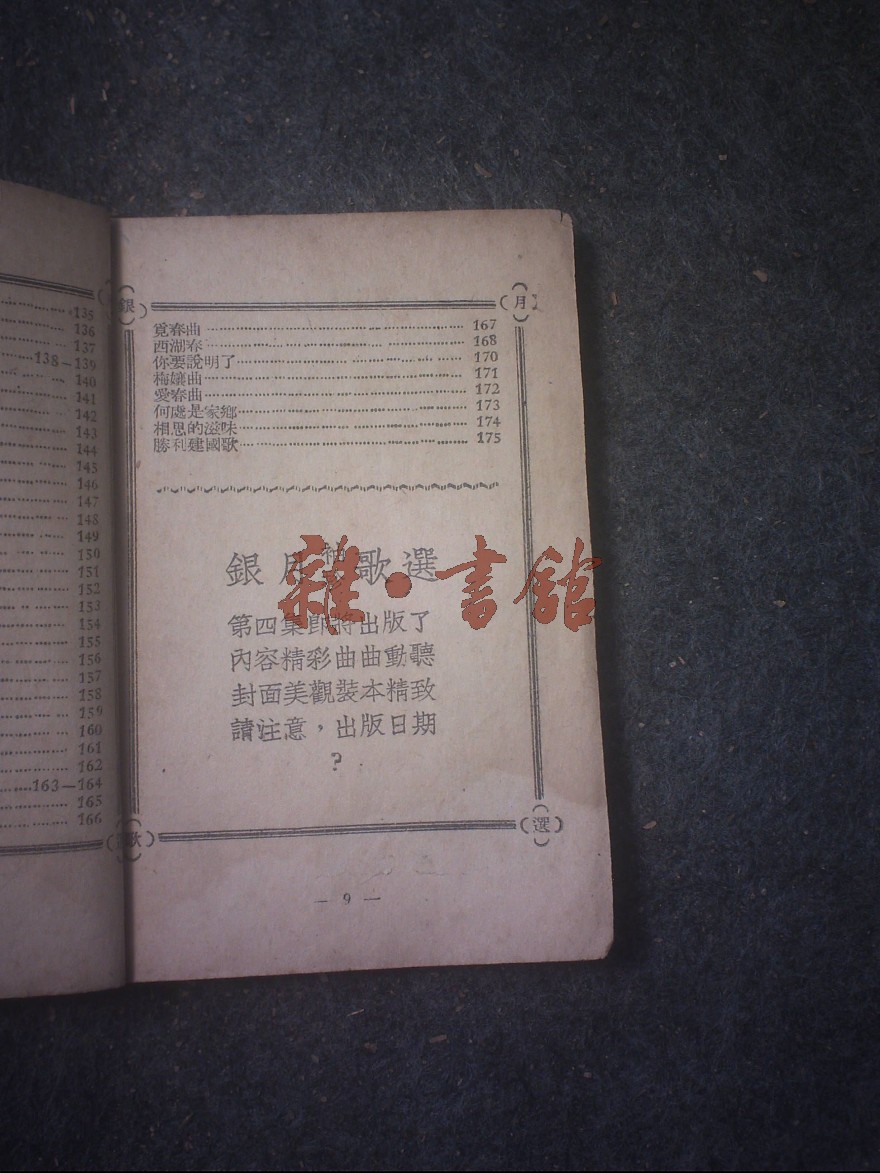 135
136
137
138—139
140
141
142
143
144
145
146
147
148
149
150
151
152
153
154
155
156
157
158
159
160
161
162
163—164
165
166
銀 月
覓春曲 167
西湖春 168
你要說明了 170
梅孃曲 171
愛春曲 172
何處是家鄉 173
相思的滋味 174
勝利建國歌 175
銀月 歌選
第四集即將出版了
內容精彩曲曲動聽
封面美觀裝本精致
請注意，出版日期
?
歌 選
— 9 —
雜·書館